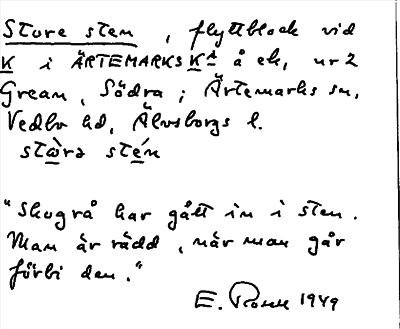 Store sten, flyttblock vid
K i ÄRTEMARKS KA å ek, nr 2
Grean, Södra; Ärtemarks sn,
Vedbo hd, Älvsborgs l.
"Skogrå har gått in i sten.
Man är rädd, när man går
förbi den."
E. 1949